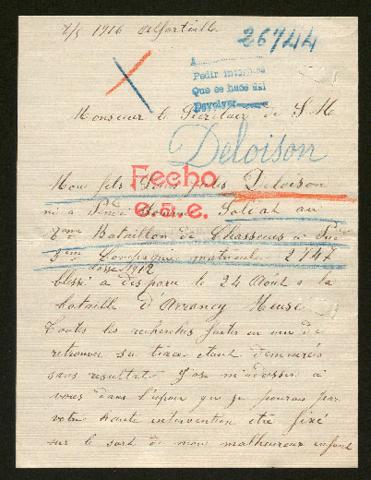 1/5 1916 Alfortville
26744
A
Pedir informes
Que se hace así
Devolver
Monsieur le Secrétaire de S M
Deloison
Fecho
e.s.e.
Mon fils Deloison
né à Soldat au
2eme Bataillon de Chasseurs à Pied
3eme Compagnie matricule 2747
classe 1912
blessé a disparu le 24 Août a la
bataille d'Arrancy Meuse
Toutes les recherches faites en vue de
retrouver sa trace etant demeurées
sans resultat J'ose m'adresser à
vous dans l'espoir que je pourrai par
votre haute intervention etre fixé
sur le sort de mon malheureux enfant